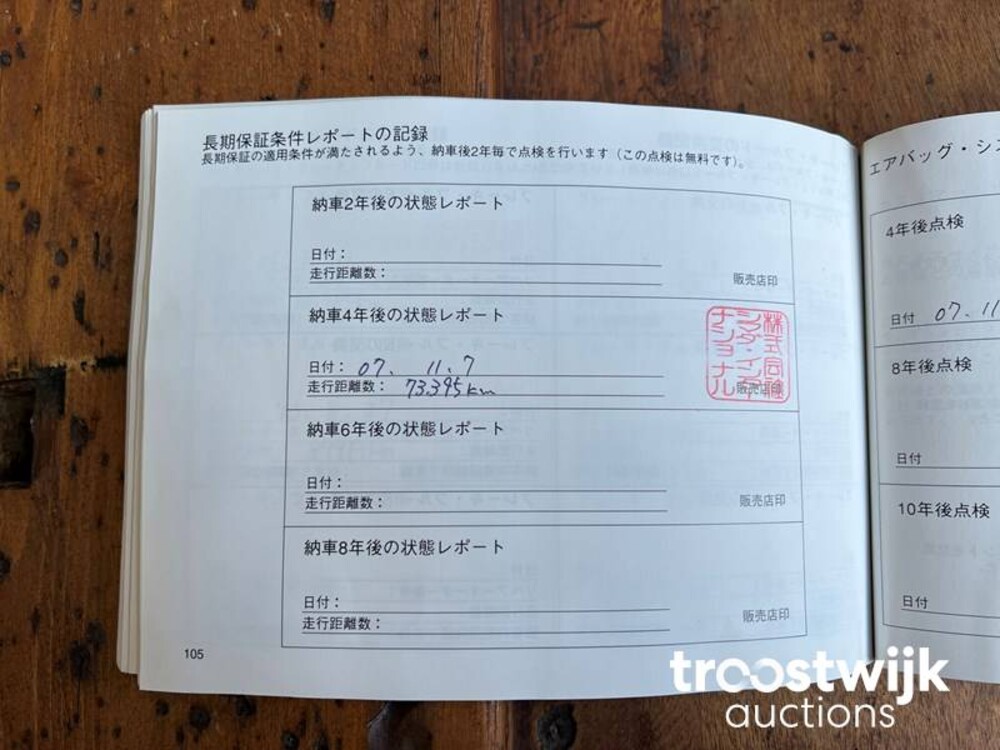 長期保証条件レポートの記録
長期保証の適用条件が満たされるよう、納車後2年毎で点検を行います（この点検は無料です）。
納車2年後の状態レポート
日付：
走行距離数：
販売店印
納車4年後の状態レポート
日付： 07. 11. 7
走行距離数： 73.395km
販売店印
株式会社
シマダ・インター
ナショナル
納車6年後の状態レポート
日付：
走行距離数：
販売店印
納車8年後の状態レポート
日付：
走行距離数：
販売店印
105
エアバッグ・シス
4年後点検
日付 07. 11
8年後点検
日付
10年後点検
日付
troostwijk
auctions